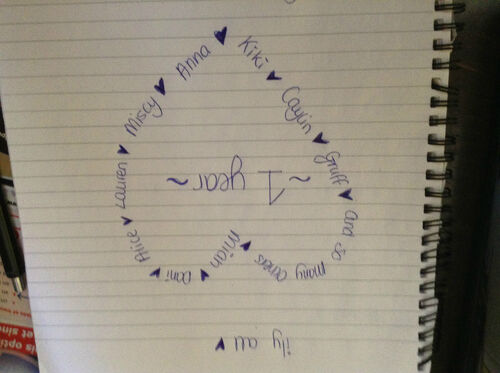 Anna
Kiki
Caylin
Gruff
and so
many others
mian
Dani
Alice
Lauren
Miscy
~ 1 year ~
ily all